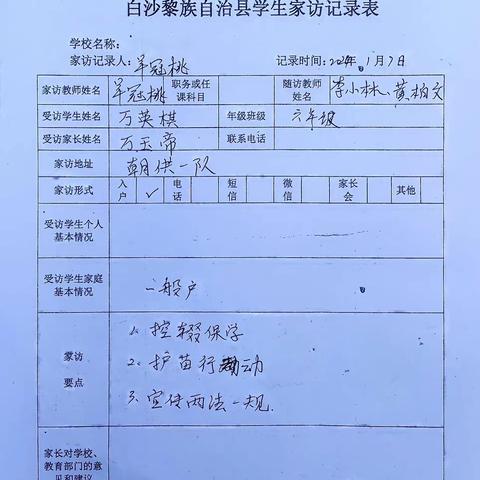 白沙黎族自治县学生家访记录表
学校名称：
家访记录人：羊冠桃 记录时间：2024年1月7日
家访教师姓名 羊冠桃 职务或任课科目 随访教师姓名 李小林、黄柏文
受访学生姓名 万英棋 年级班级 六年级
受访家长姓名 万玉帝 联系电话
家访地址 朝供一队
家访形式 入户 ✓ 电话 短信 微信 家长会 其他
受访学生个人
基本情况
受访学生家庭
基本情况 一般户
家访
要点
1、控辍保学
2、护苗行动
3、宣传两法一规.
家长对学校、
教育部门的意
见和建议